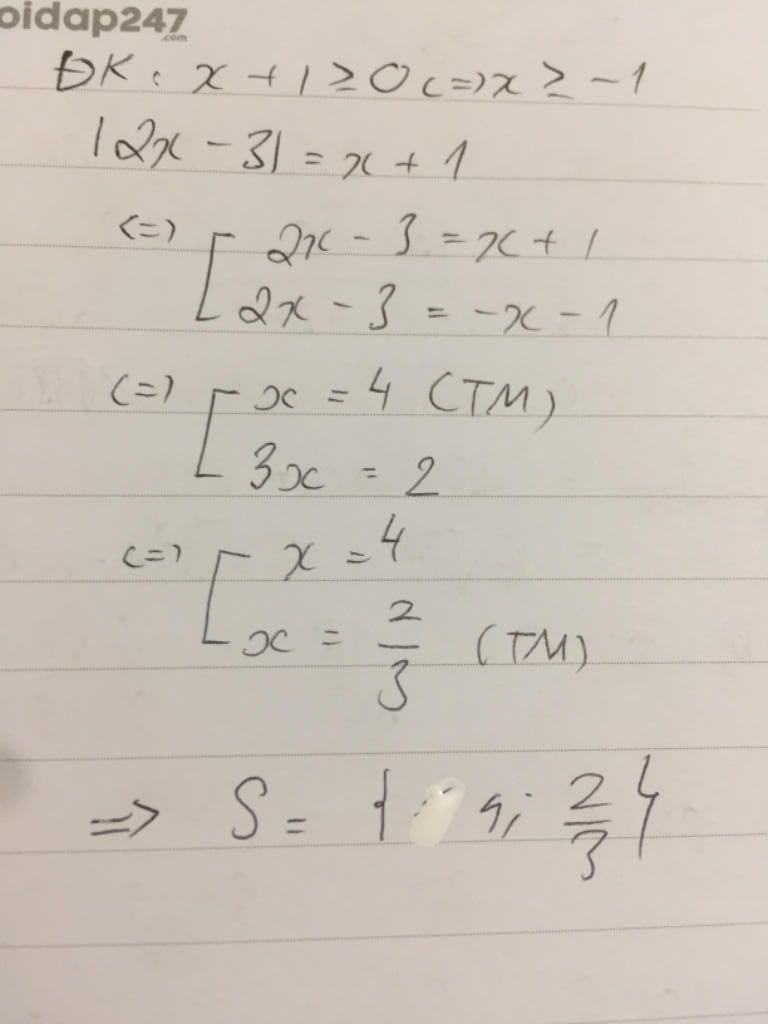 oidap247
.com
ĐK: x + 1 ≥ 0 <=> x ≥ -1
|2x - 3| = x + 1
<=> [ 2x - 3 = x + 1
2x - 3 = -x - 1
<=> [ x = 4 (TM)
3x = 2
<=> [ x = 4
x = 2/3 (TM)
=> S = { 4; 2/3 }